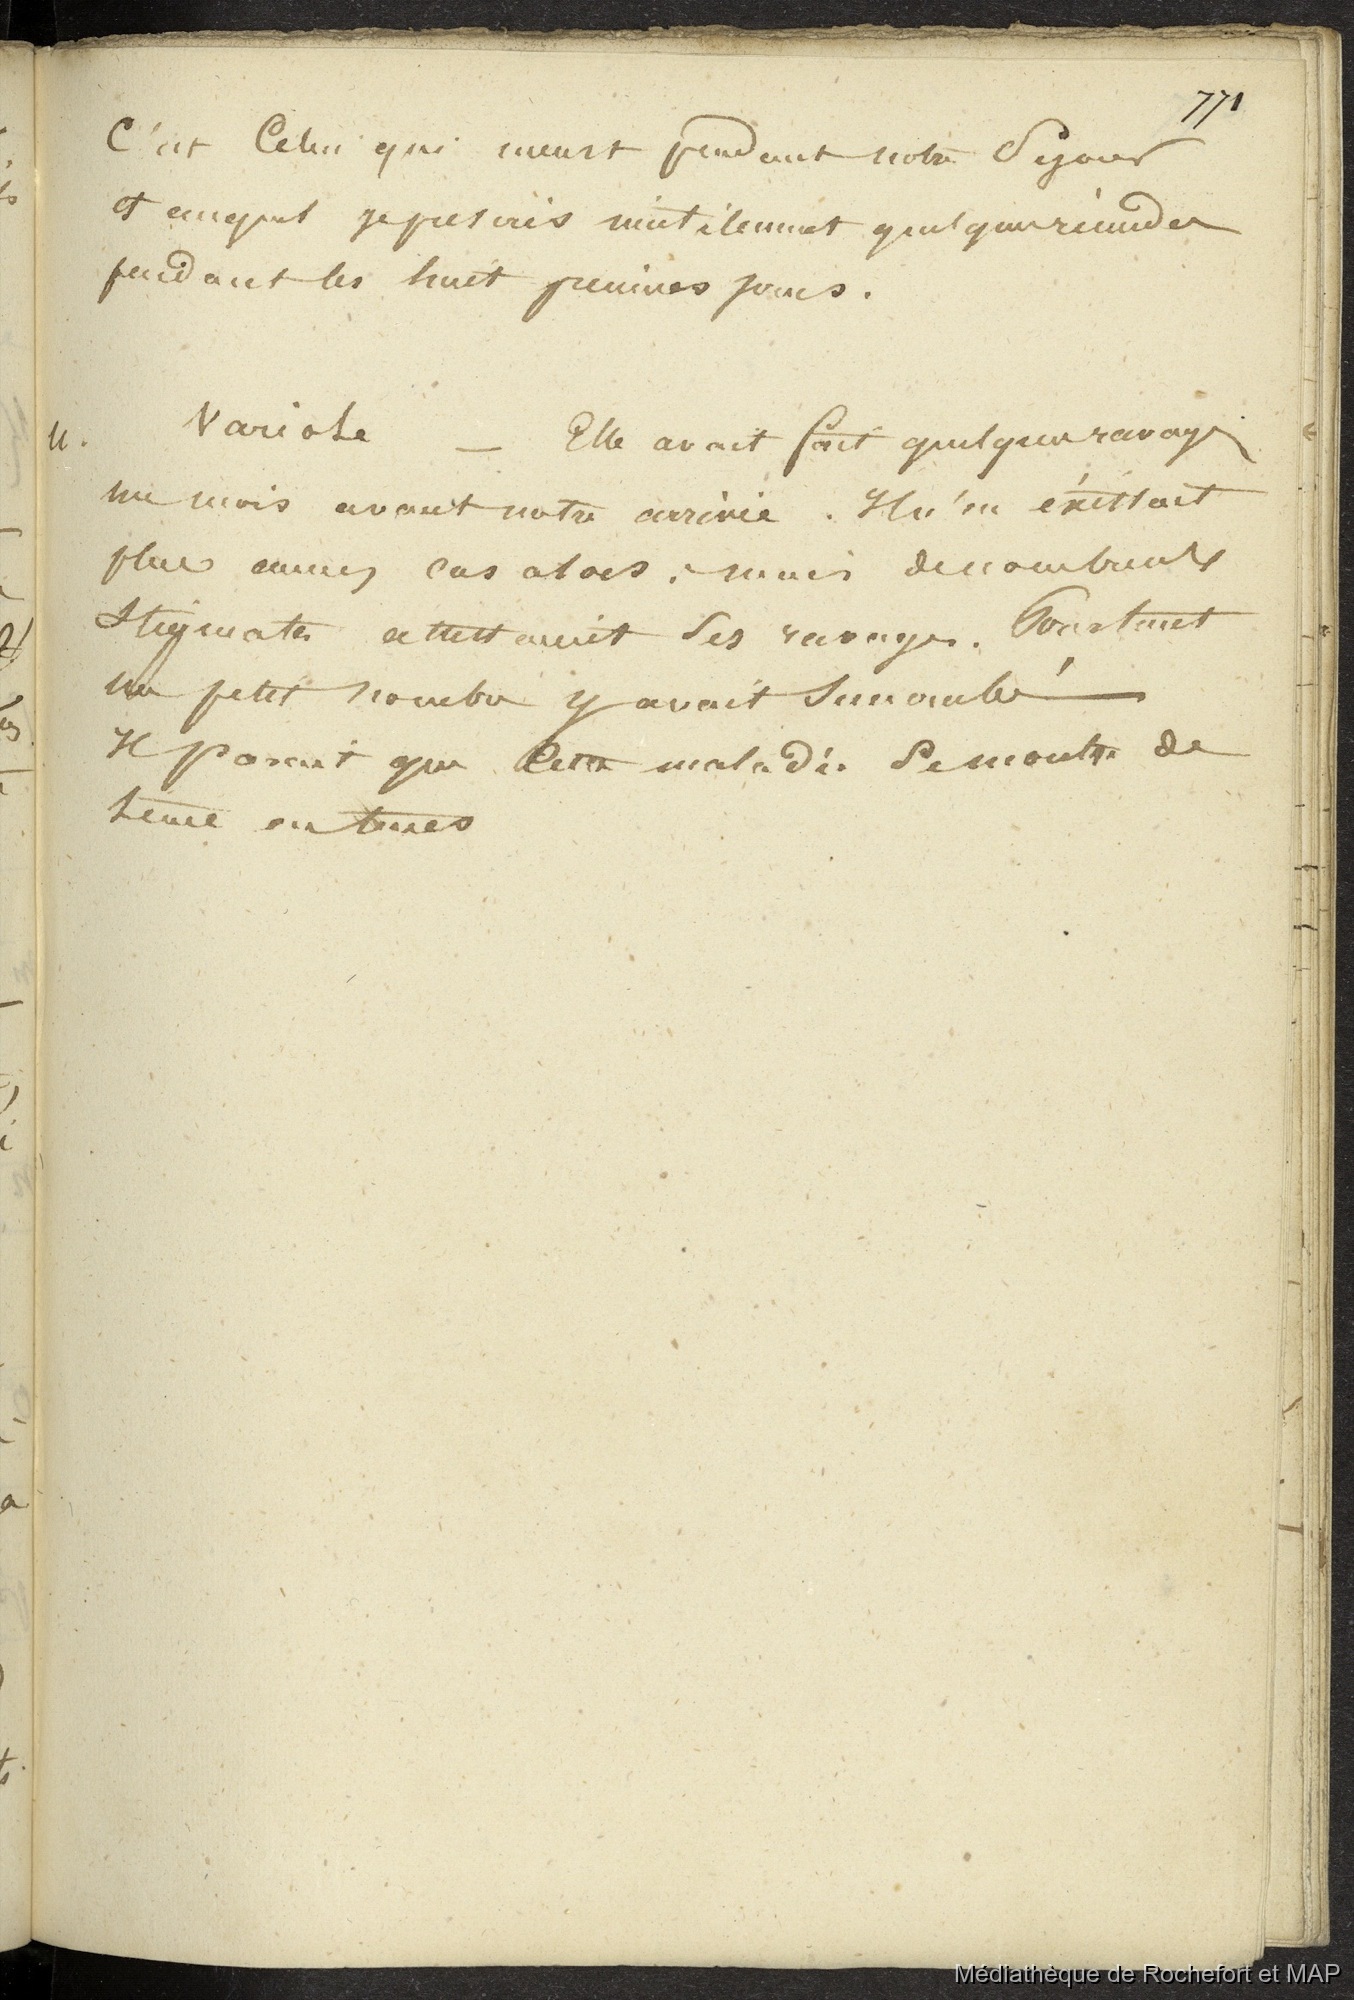 771
C'est Celui qui meurt pendant notre Séjour
et auquel je prescris inutilement quelques remèdes
pendant les huit premiers jours.
Variole — Elle avait fait quelques ravages
un mois avant notre arrivée. Il n'en existait
plus aucun cas alors ; mais de nombreux
Stigmates attestaient ses ravages. Pourtant
un petit nombre y avait Succombé —
Il parait que Cette maladie Se montre de
temps en temps
Médiathèque de Rochefort et MAP